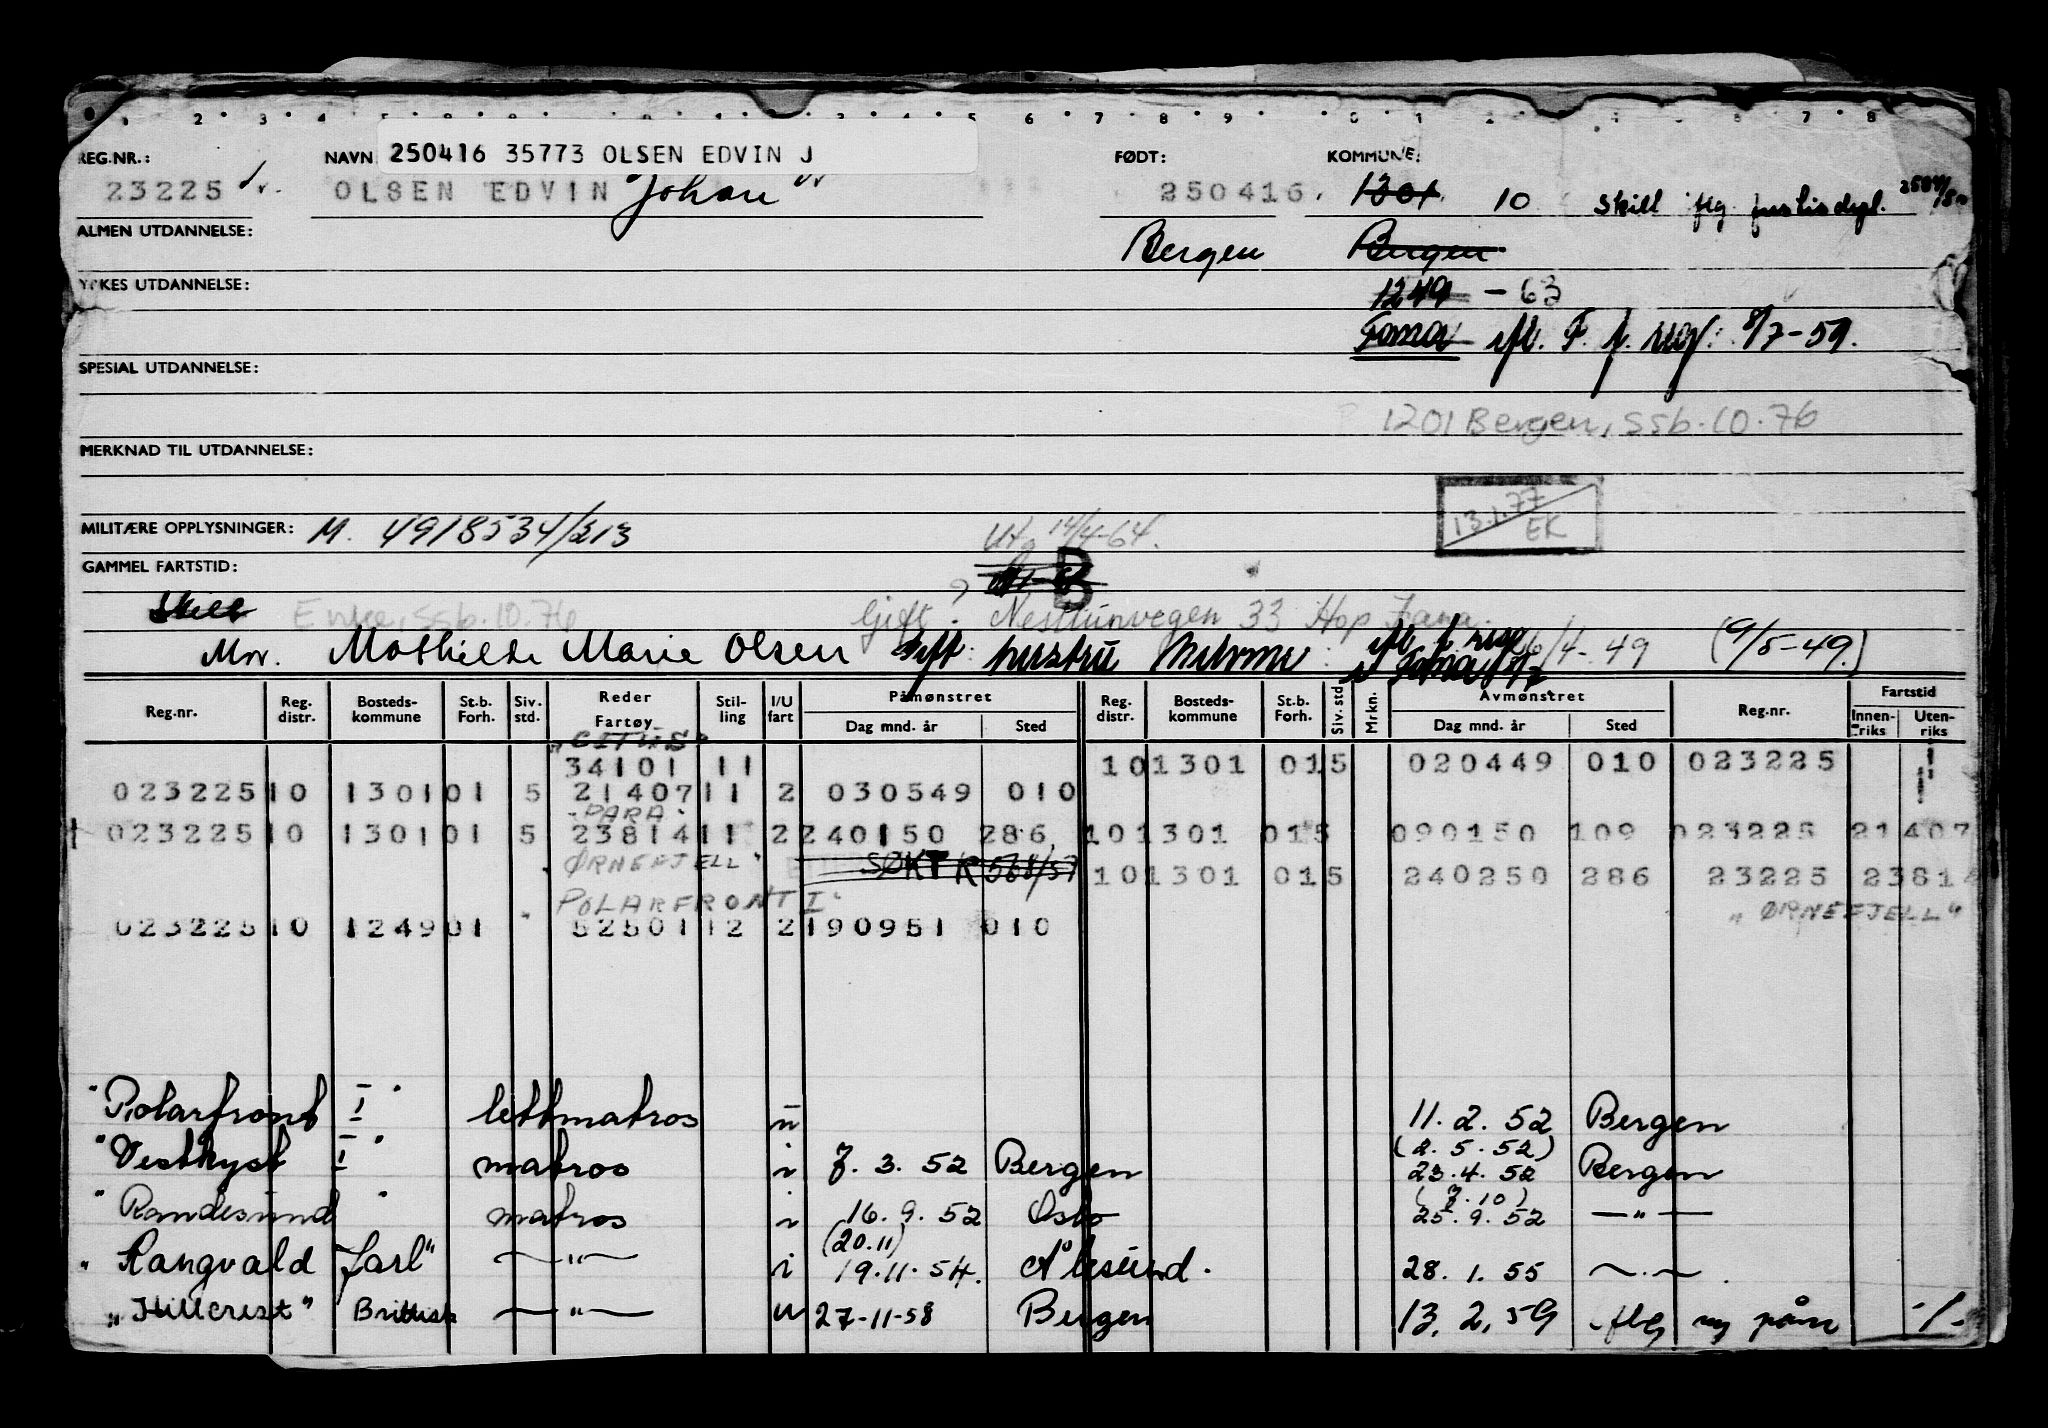 REG.NR.: NAVN 250416 35773 OLSEN EDVIN J FØDT: KOMMUNE:
23225 OLSEN EDVIN Johan 250416. 1301 10 Skilt flg
ALMEN UTDANNELSE: Bergen Bergen
YRKES UTDANNELSE: 1249 - 63
Fana 8/7-59.
SPESIAL UTDANNELSE:
1201 Bergen, SSb.10.76
MERKNAD TIL UTDANNELSE:
13.1.77
EK
MILITÆRE OPPLYSNINGER: M. 4918534/213 Utg 14/4-64.
GAMMEL FARTSTID: B
Skilt Enke, SSb.10.76 Gift. Nesttunvegen 33 Hop Fana.
Mor. Mathilde Marie Olsen Gift: hustru 49 (9/5-49.)
Reg.nr. Reg. distr. Bosteds-kommune St.b. Forh. Siv. std. Reder Fartøy Stil-ling I/U fart Påmønstret Dag mnd. år Sted Reg. distr. Bosteds-kommune St.b. Forh. Siv. std Mrkn. Avmønstret Dag mnd. år Sted Reg.nr. Fartstid Innen-riks Uten-riks
34101 11 10 1301 01 5 020449 010 023225
023225 10 1301 01 5 21407 11 2 030549 010
"PARA"
023225 10 1301 01 5 23814 11 2 240150 286 10 1301 01 5 090150 109 023225 21407
"ØRNEFJELL" SØKT R 568/57 10 1301 01 5 240250 286 23225 23814
"POLARFRONT I" "ØRNEFJELL"
023225 10 1249 01 52501 12 2 190951 010
"Polarfront I" lettmatros u 11.2.52 Bergen
(2.5.52)
"Vestkyst I" matros i 7.3.52 Bergen 23.4.52 Bergen
(7.10)
"Randesund" matros i 16.9.52 Oslo 25.9.52 —"—
(20.11)
"Rangvald Jarl" —"— i 19.11.54. Ålesund. 28.1.55 —"—
"Hillcrest" Brittisk —"— u 27-11-58 Bergen 13.2.59 flg ny påm -/-